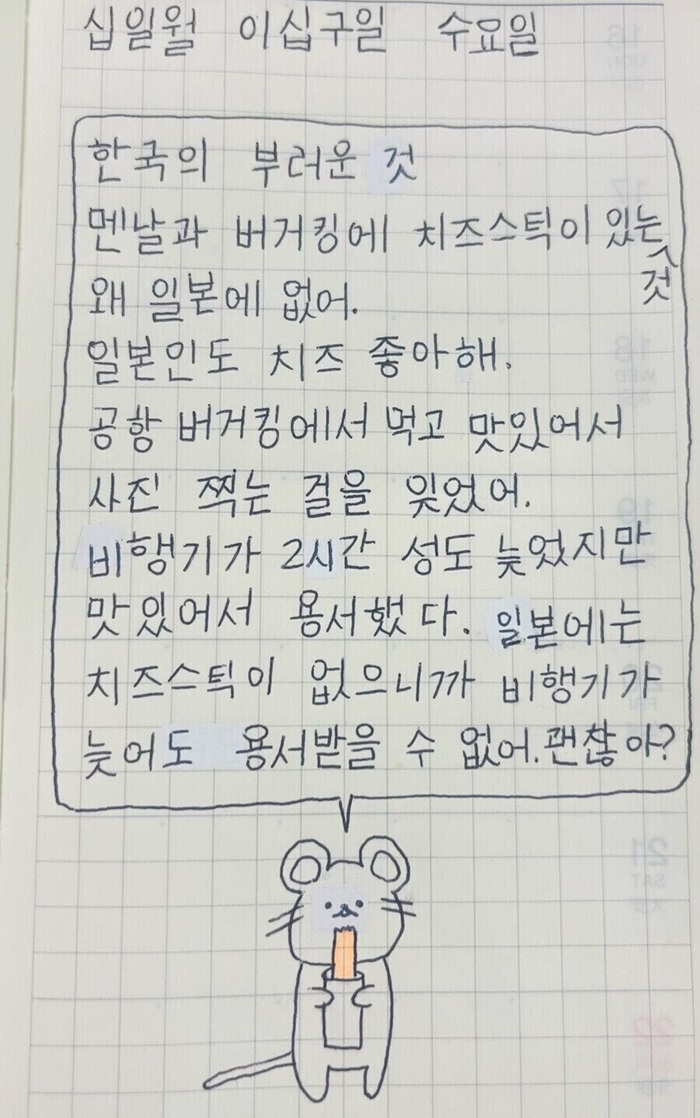 십일월 이십구일 수요일
한국의 부러운 것
멘날과 버거킹에 치즈스틱이 있는 것
왜 일본에 없어.
일본인도 치즈 좋아해.
공항 버거킹에서 먹고 맛있어서
사진 찍는 걸을 잊었어.
비행기가 2시간 성도 늦었지만
맛있어서 용서했다. 일본에는
치즈스틱이 없으니까 비행기가
늦어도 용서받을 수 없어. 괜찮아?